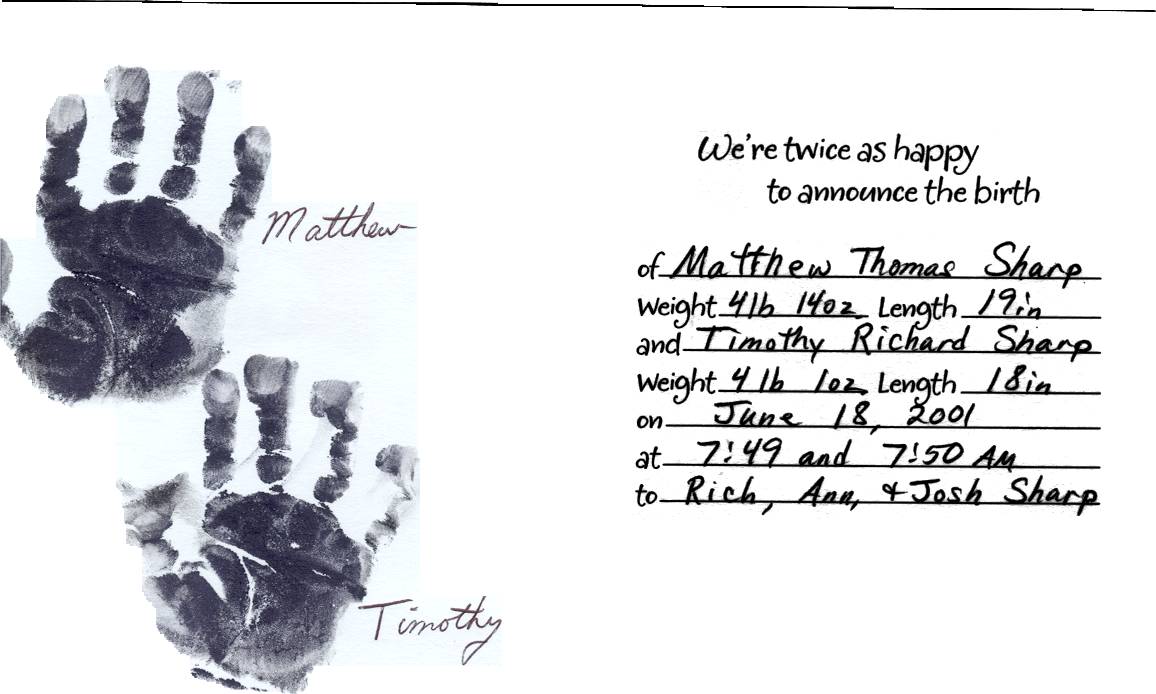 Matthew
Timothy
We're twice as happy
to announce the birth
of Matthew Thomas Sharp
Weight 4lb 14oz Length 19in
and Timothy Richard Sharp
Weight 4 lb 1oz Length 18in
on June 18, 2001
at 7:49 and 7:50 AM
to Rich, Ann, & Josh Sharp